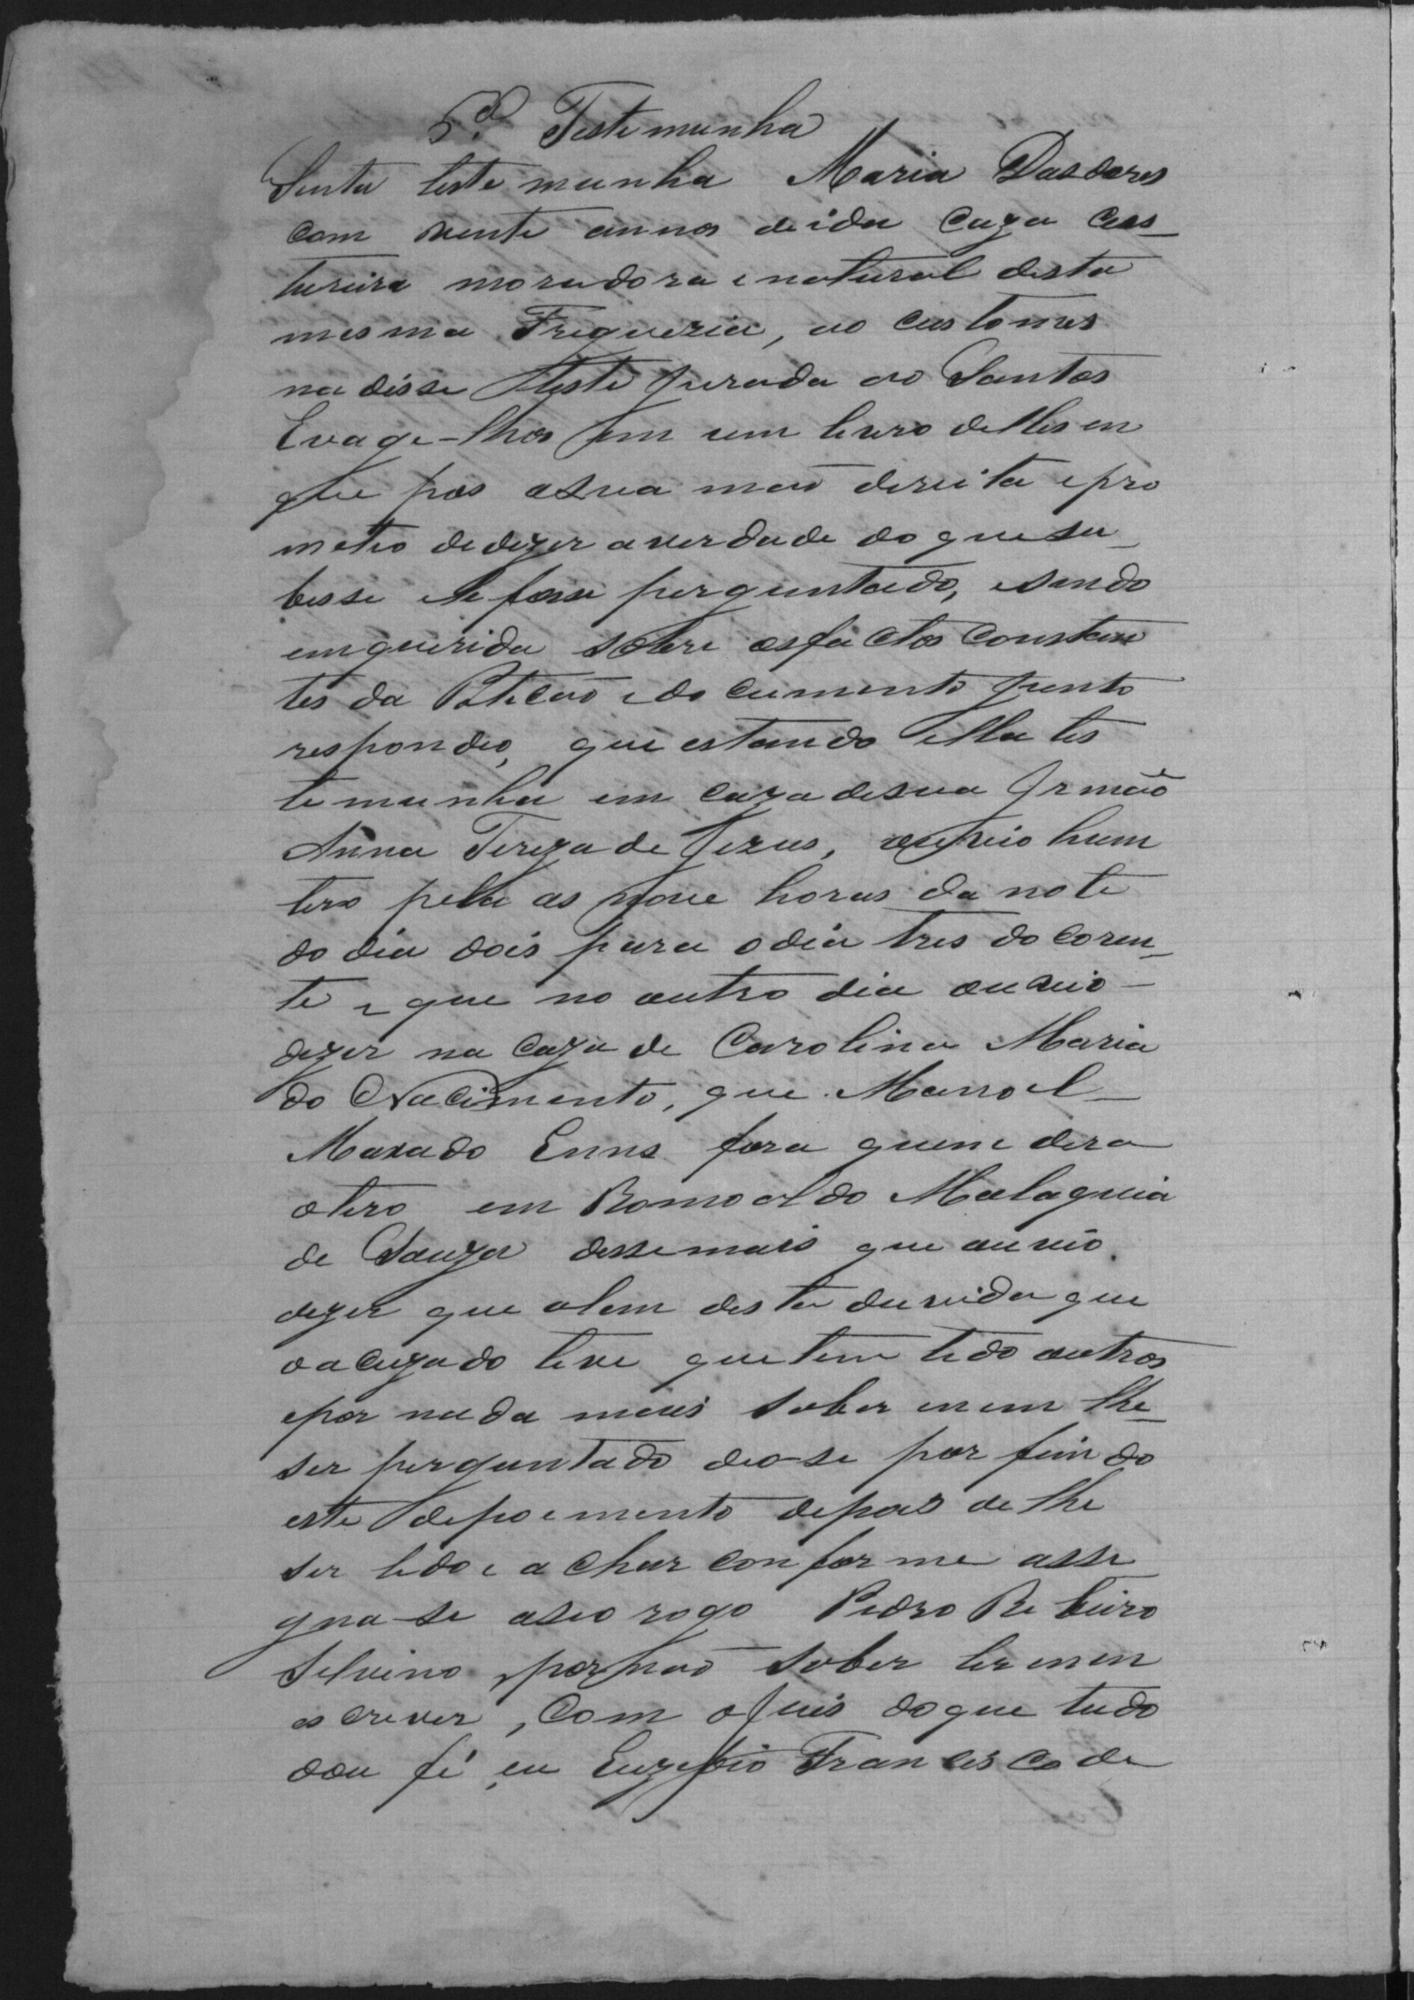 5ª Testemunha
Sinta testemunha Maria Dasdores
com vente annos de ida Caza Cus_
tureira moradora e natural desta
mesma Freguezia, ao customes
na disse Teste jurada ao Santos
Evage-lhos em um livro delles en
que pos a sua maõ direita e pro
meteo de dizer a verdade do que su_
besse e le fosse perguntado, e sendo
enquerida sobre os factos constan
tes da Peticaõ e documento junto
respondeo, que estando ella tes
temunha em caza de sua Irmaõ
Anna Tereza de Jezus, ouvio hum
tiro pela as nove horas da note
do dia dois para o dia tres do coren_
te e que no outro dia ouvio_
dizer na Caza de Carolina Maria
do Nacimento, que Manoel_
Maxado Enns fora quem dera
o tiro em Romoaldo Malaquia
de Souza disse mais que ouvio
dizer que alem desta duvida que
o acuzado teve que tem tido outros
e por nada mais saber e nem lhe_
ser perguntado deo-se por findo
este depoemento depois de lhe
ser lido e achar conforme assi
gna-se a seo rogo Pedro Ribeiro
Selvino, por naõ saber ler e nem
escrever, Com o Juis do que tudo
dou fé, eu Euzebio Francisco de